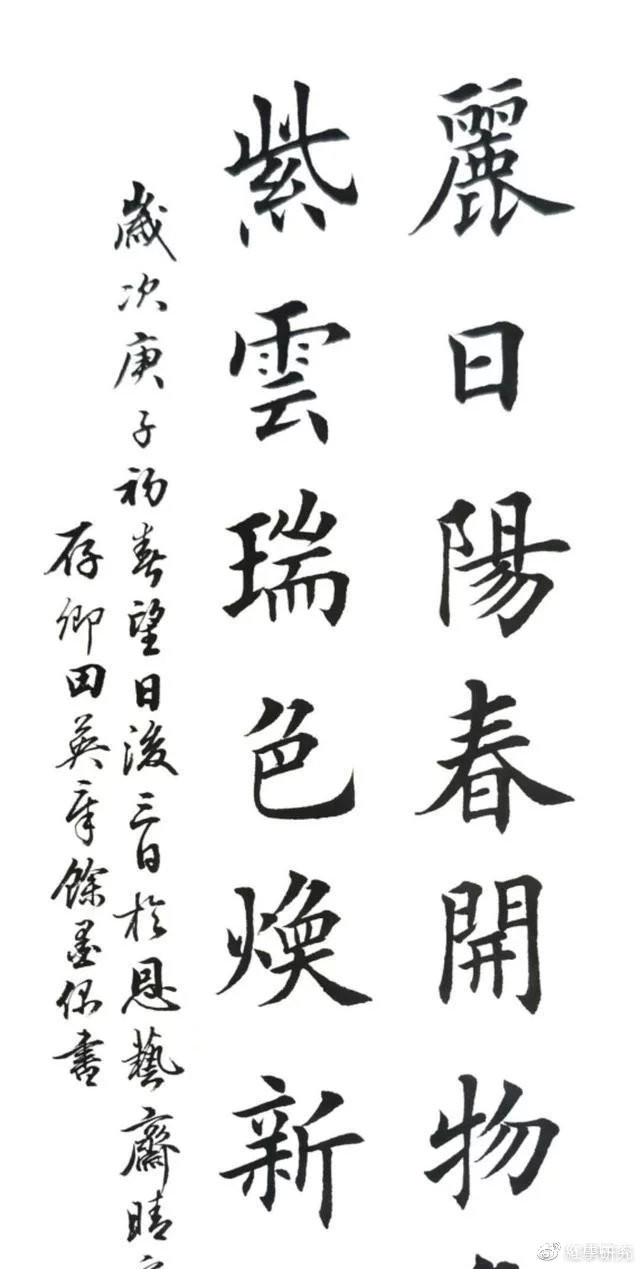 麗日陽春開物
紫雲瑞色煥新
歲次庚子初春望日後三日於恩藝齋晴
存卿田英章餘墨偶書